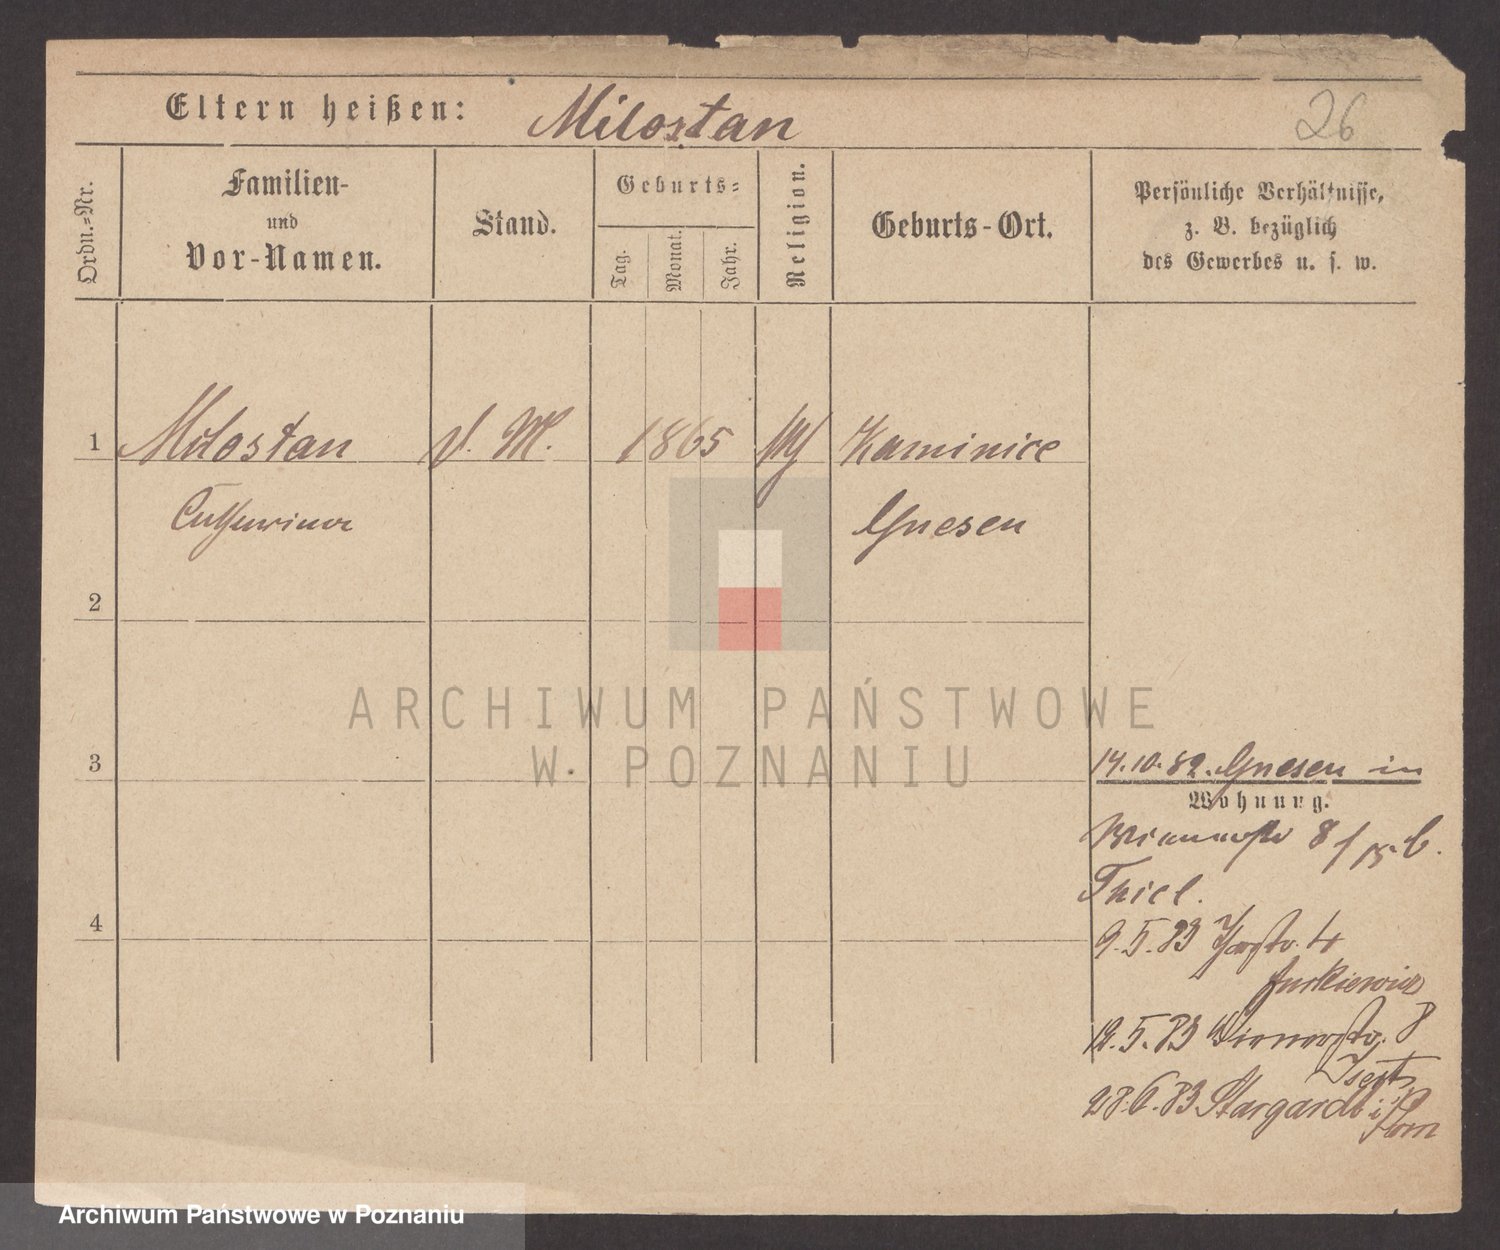 Eltern heißen: Milostan
26
Ordn.-Nr.
Familien-
und
Vor-Namen.
Stand.
Geburts-
Tag.
Monat.
Jahr.
Religion.
Geburts-Ort.
Persönliche Verhältnisse,
z. B. bezüglich
des Gewerbes u. s. w.
1 Milostan D. M. 1865 Kaminiec
Catharina Gnesen
2
3
4
14.10.82. Gnesen in
Wohnung.
8/15 b.
Thiel.
9.5.83 4
12.5.83 Wienerstr. 8
28.6.83 Stargardt i Pom
ARCHIWUM PAŃSTWOWE
W POZNANIU
Archiwum Państwowe w Poznaniu